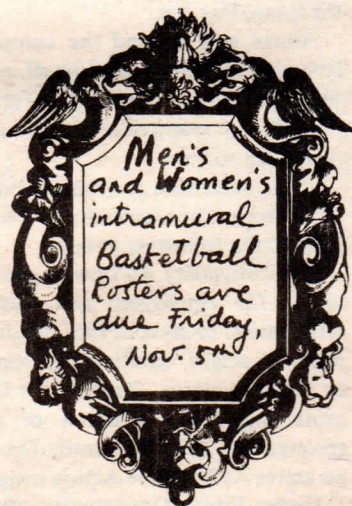 Men's
and Women's
intramural
Basketball
Rosters are
due Friday,
Nov. 5th